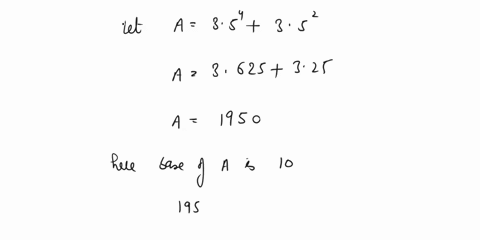 let A = 3·5⁴ + 3·5²
A = 3·625 + 3·25
A = 1950
here base of A is 10
195